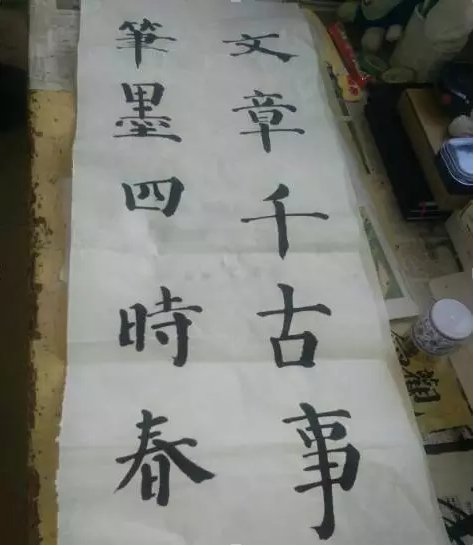 文章千古事
筆墨四時春